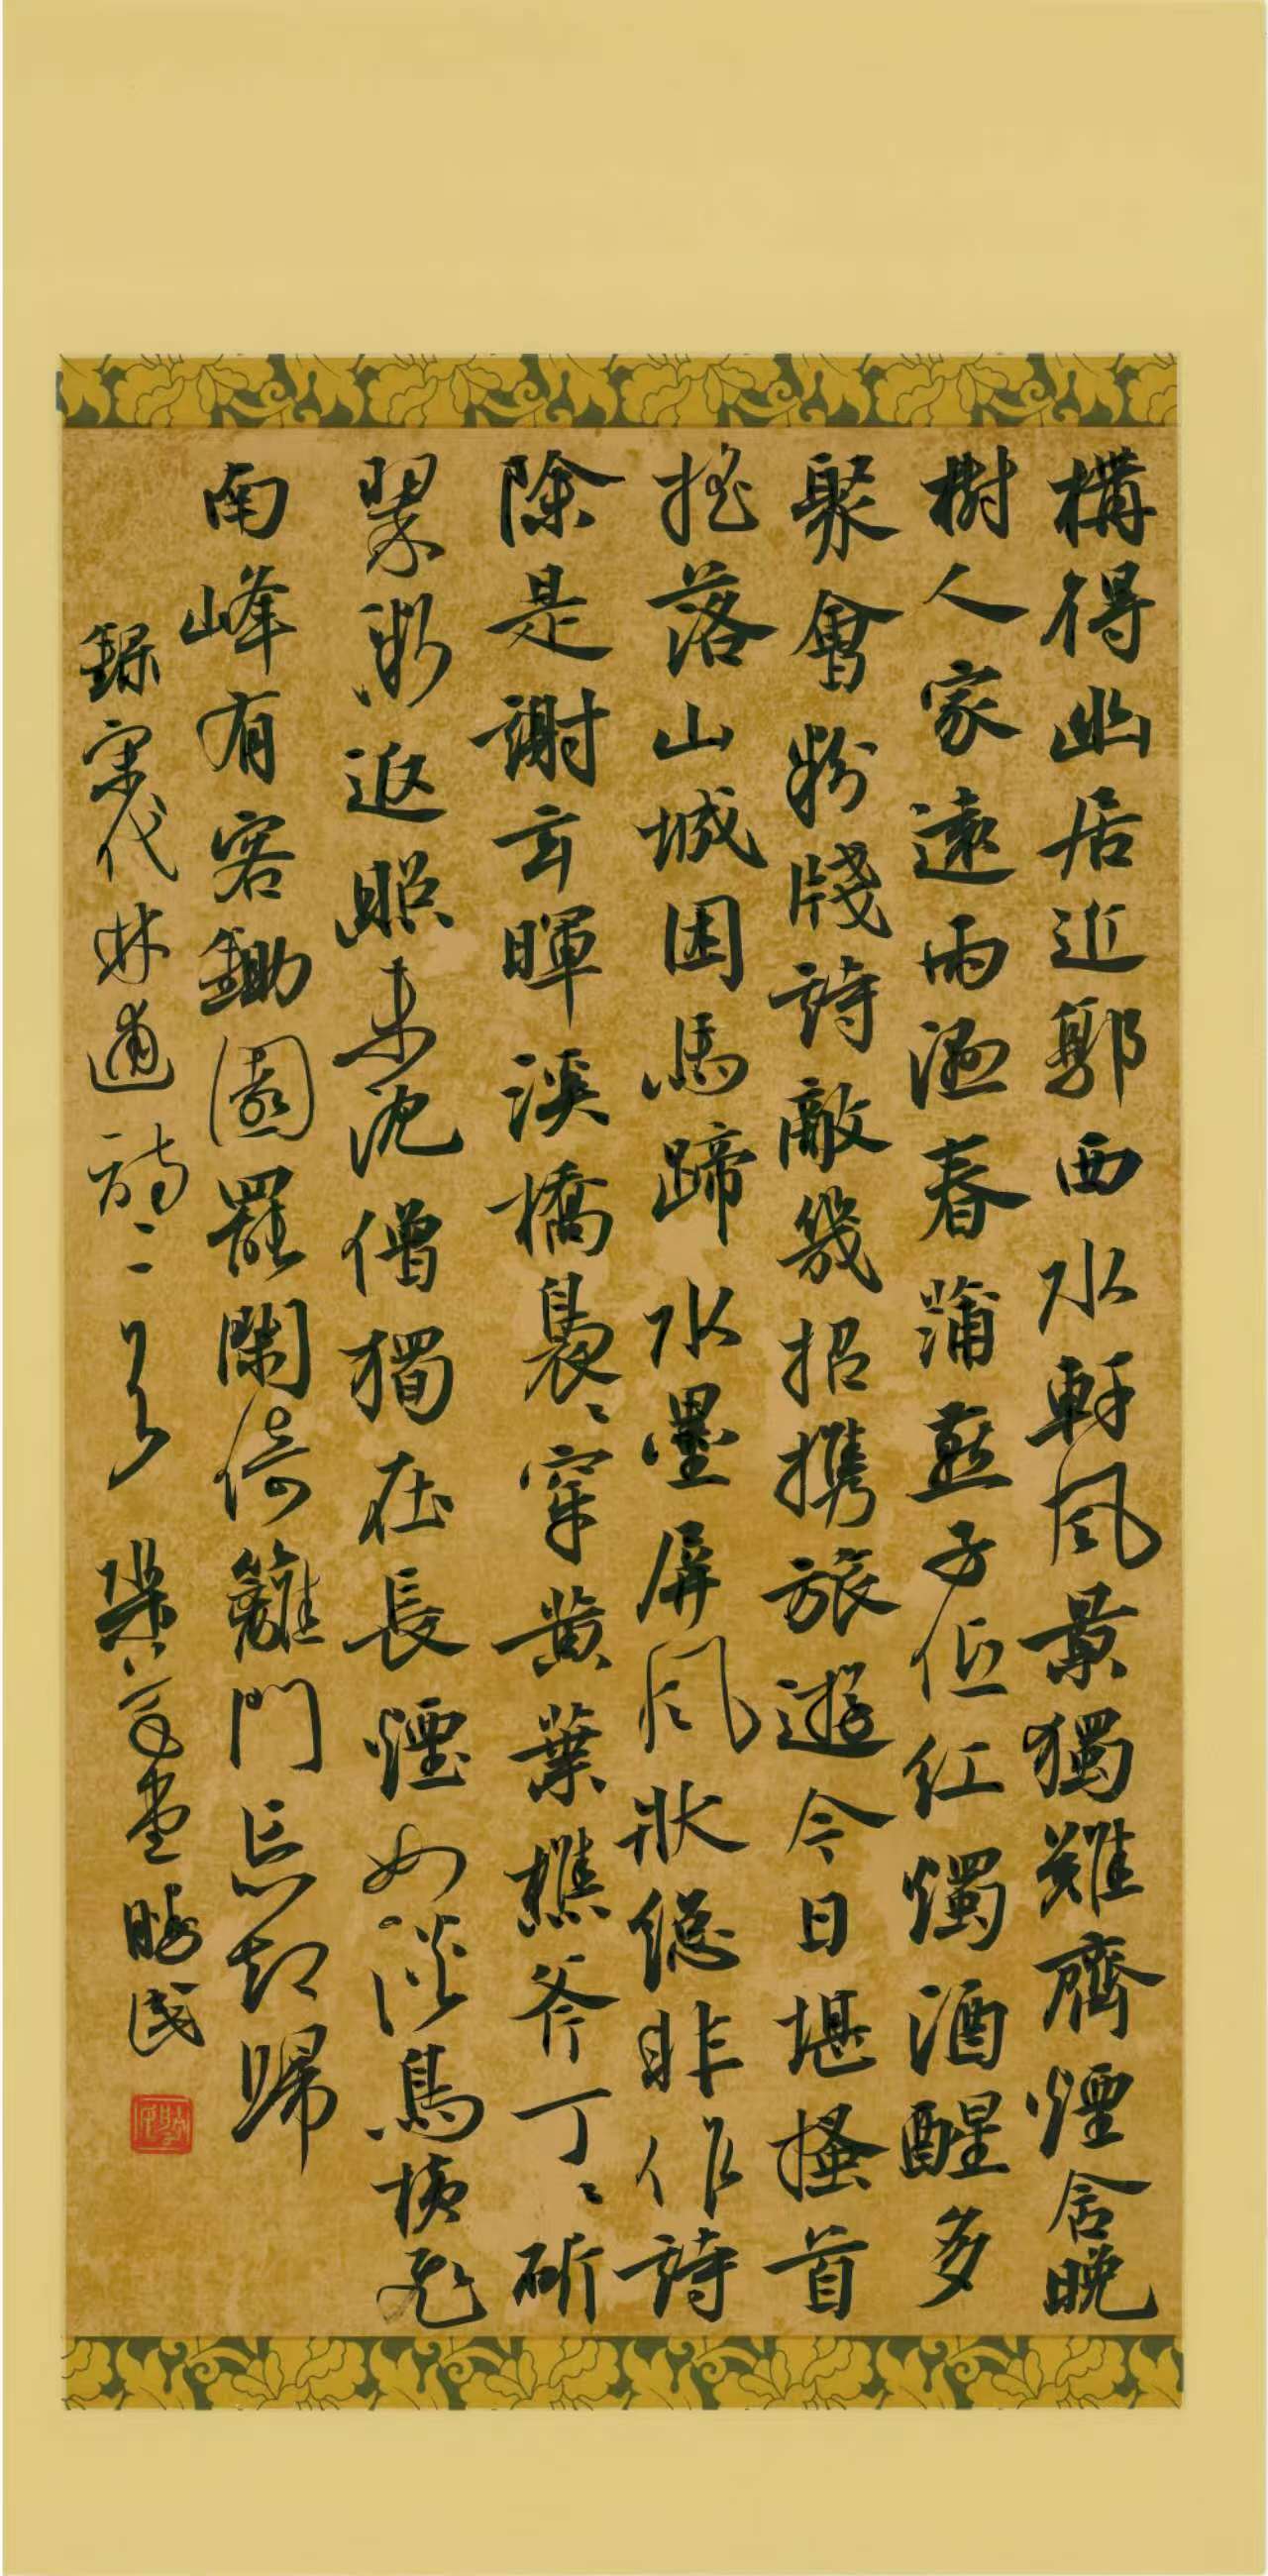 構得幽居近郭西水軒風景獨難齊煙含晚
樹人家遠雨濕春蒲燕子低紅燭酒醒多
聚會粉牋詩敵幾招攜旅遊今日堪搔首
搖落山城困馬蹄水墨屏風狀總非作詩
除是謝玄暉溪橋裊〻穿黃葉樵斧丁〻斫
翠微返照未沈僧獨在長煙如淡鳥橫飛
南峰有客鋤園罷閑倚籬門忘却歸
錄宋代林逋詩二首 堂